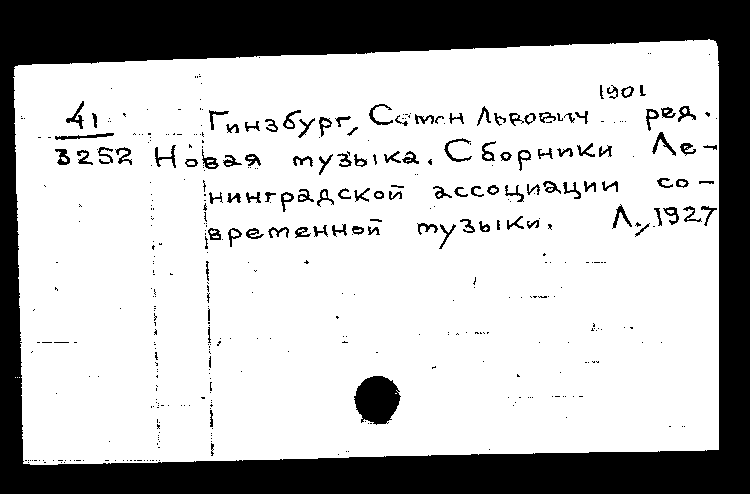 1901
41 Гинзбург, Семен Львович ред.
3252 Новая музыка. Сборники Ле-
нинградской ассоциации со-
временной музыки. Л., 1927